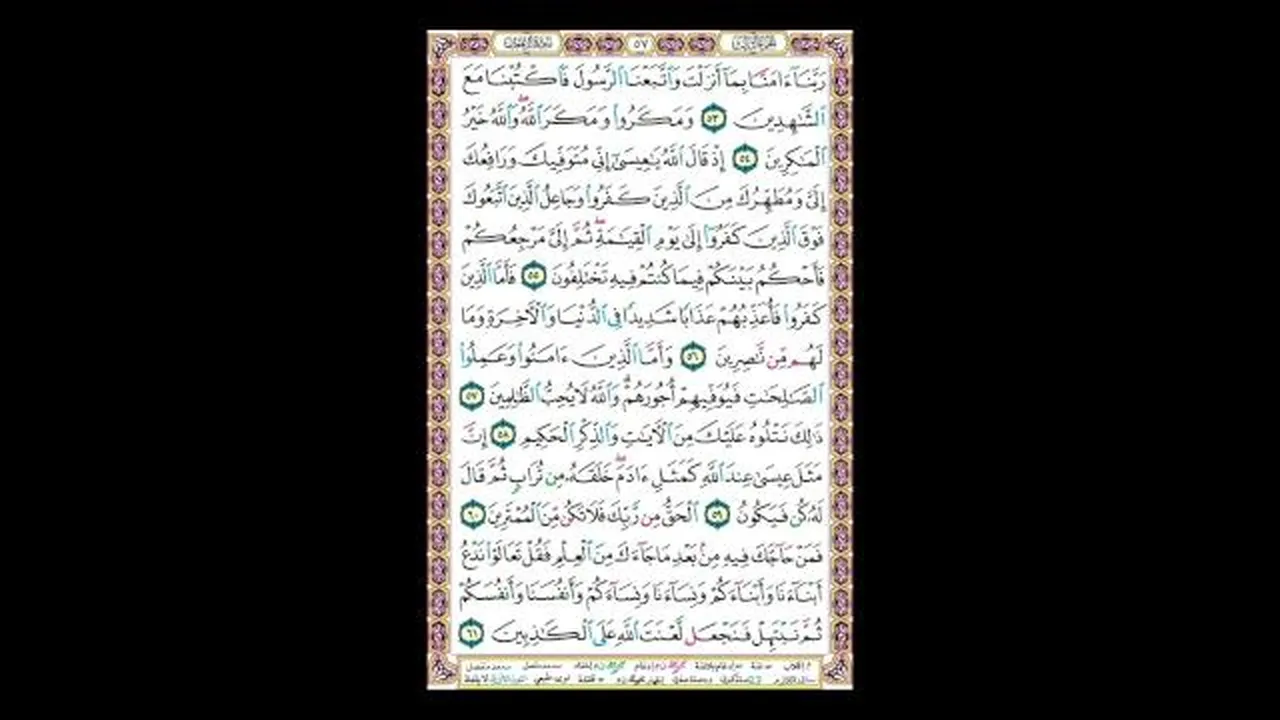 سورة آل عمران ٥٧ الجزء الثالث
رَبَّنَآ ءَامَنَّا بِمَآ أَنزَلْتَ وَٱتَّبَعْنَا ٱلرَّسُولَ فَٱكْتُبْنَا مَعَ
ٱلشَّٰهِدِينَ ٥٣ وَمَكَرُوا۟ وَمَكَرَ ٱللَّهُ ۖ وَٱللَّهُ خَيْرُ
ٱلْمَٰكِرِينَ ٥٤ إِذْ قَالَ ٱللَّهُ يَٰعِيسَىٰٓ إِنِّى مُتَوَفِّيكَ وَرَافِعُكَ
إِلَىَّ وَمُطَهِّرُكَ مِنَ ٱلَّذِينَ كَفَرُوا۟ وَجَاعِلُ ٱلَّذِينَ ٱتَّبَعُوكَ
فَوْقَ ٱلَّذِينَ كَفَرُوٓا۟ إِلَىٰ يَوْمِ ٱلْقِيَٰمَةِ ۖ ثُمَّ إِلَىَّ مَرْجِعُكُمْ
فَأَحْكُمُ بَيْنَكُمْ فِيمَا كُنتُمْ فِيهِ تَخْتَلِفُونَ ٥٥ فَأَمَّا ٱلَّذِينَ
كَفَرُوا۟ فَأُعَذِّبُهُمْ عَذَابًا شَدِيدًا فِى ٱلدُّنْيَا وَٱلْءَاخِرَةِ وَمَا
لَهُم مِّن نَّٰصِرِينَ ٥٦ وَأَمَّا ٱلَّذِينَ ءَامَنُوا۟ وَعَمِلُوا۟
ٱلصَّٰلِحَٰتِ فَيُوَفِّيهِمْ أُجُورَهُمْ ۗ وَٱللَّهُ لَا يُحِبُّ ٱلظَّٰلِمِينَ ٥٧
ذَٰلِكَ نَتْلُوهُ عَلَيْكَ مِنَ ٱلْءَايَٰتِ وَٱلذِّكْرِ ٱلْحَكِيمِ ٥٨ إِنَّ
مَثَلَ عِيسَىٰ عِندَ ٱللَّهِ كَمَثَلِ ءَادَمَ ۖ خَلَقَهُۥ مِن تُرَابٍ ثُمَّ قَالَ
لَهُۥ كُن فَيَكُونُ ٥٩ ٱلْحَقُّ مِن رَّبِّكَ فَلَا تَكُن مِّنَ ٱلْمُمْتَرِينَ ٦٠
فَمَنْ حَآجَّكَ فِيهِ مِنۢ بَعْدِ مَا جَآءَكَ مِنَ ٱلْعِلْمِ فَقُلْ تَعَالَوْا۟ نَدْعُ
أَبْنَآءَنَا وَأَبْنَآءَكُمْ وَنِسَآءَنَا وَنِسَآءَكُمْ وَأَنفُسَنَا وَأَنفُسَكُمْ
ثُمَّ نَبْتَهِلْ فَنَجْعَل لَّعْنَتَ ٱللَّهِ عَلَى ٱلْكَٰذِبِينَ ٦١